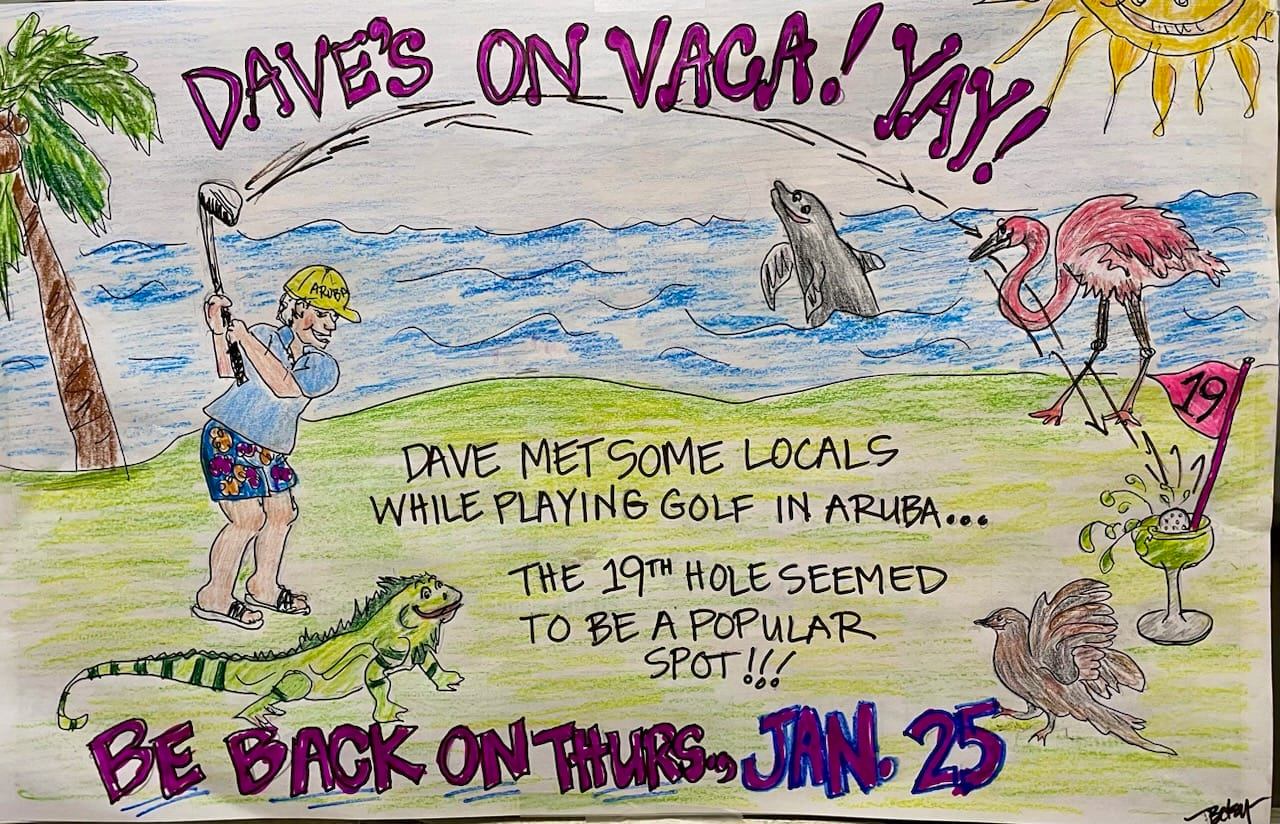 DAVE'S ON VACA! YAY!
ARUBA
DAVE MET SOME LOCALS
WHILE PLAYING GOLF IN ARUBA...
19
THE 19TH HOLE SEEMED
TO BE A POPULAR
SPOT!!!
BE BACK ON THURS., JAN. 25